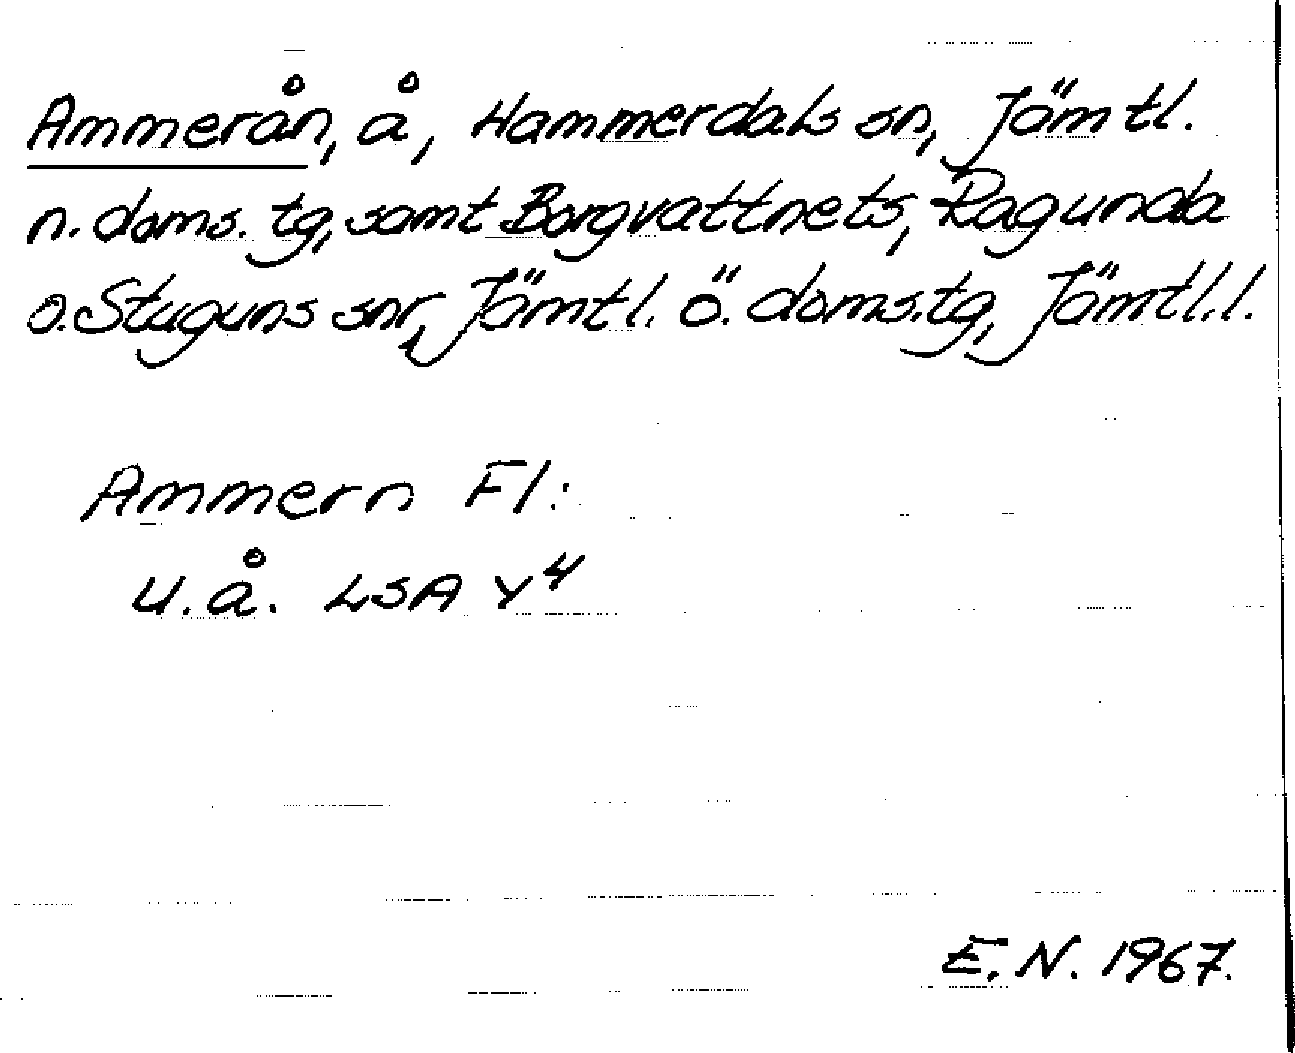 Ammerån, å, Hammerdals sn, Jämtl.
n. doms. tg, samt Borgvattnets, Ragunda
o. Stuguns snr, Jämtl. ö. doms. tg, Jämtl. l.
Ammern Fl:
u. å. LSA Y4
E. N. 1967.